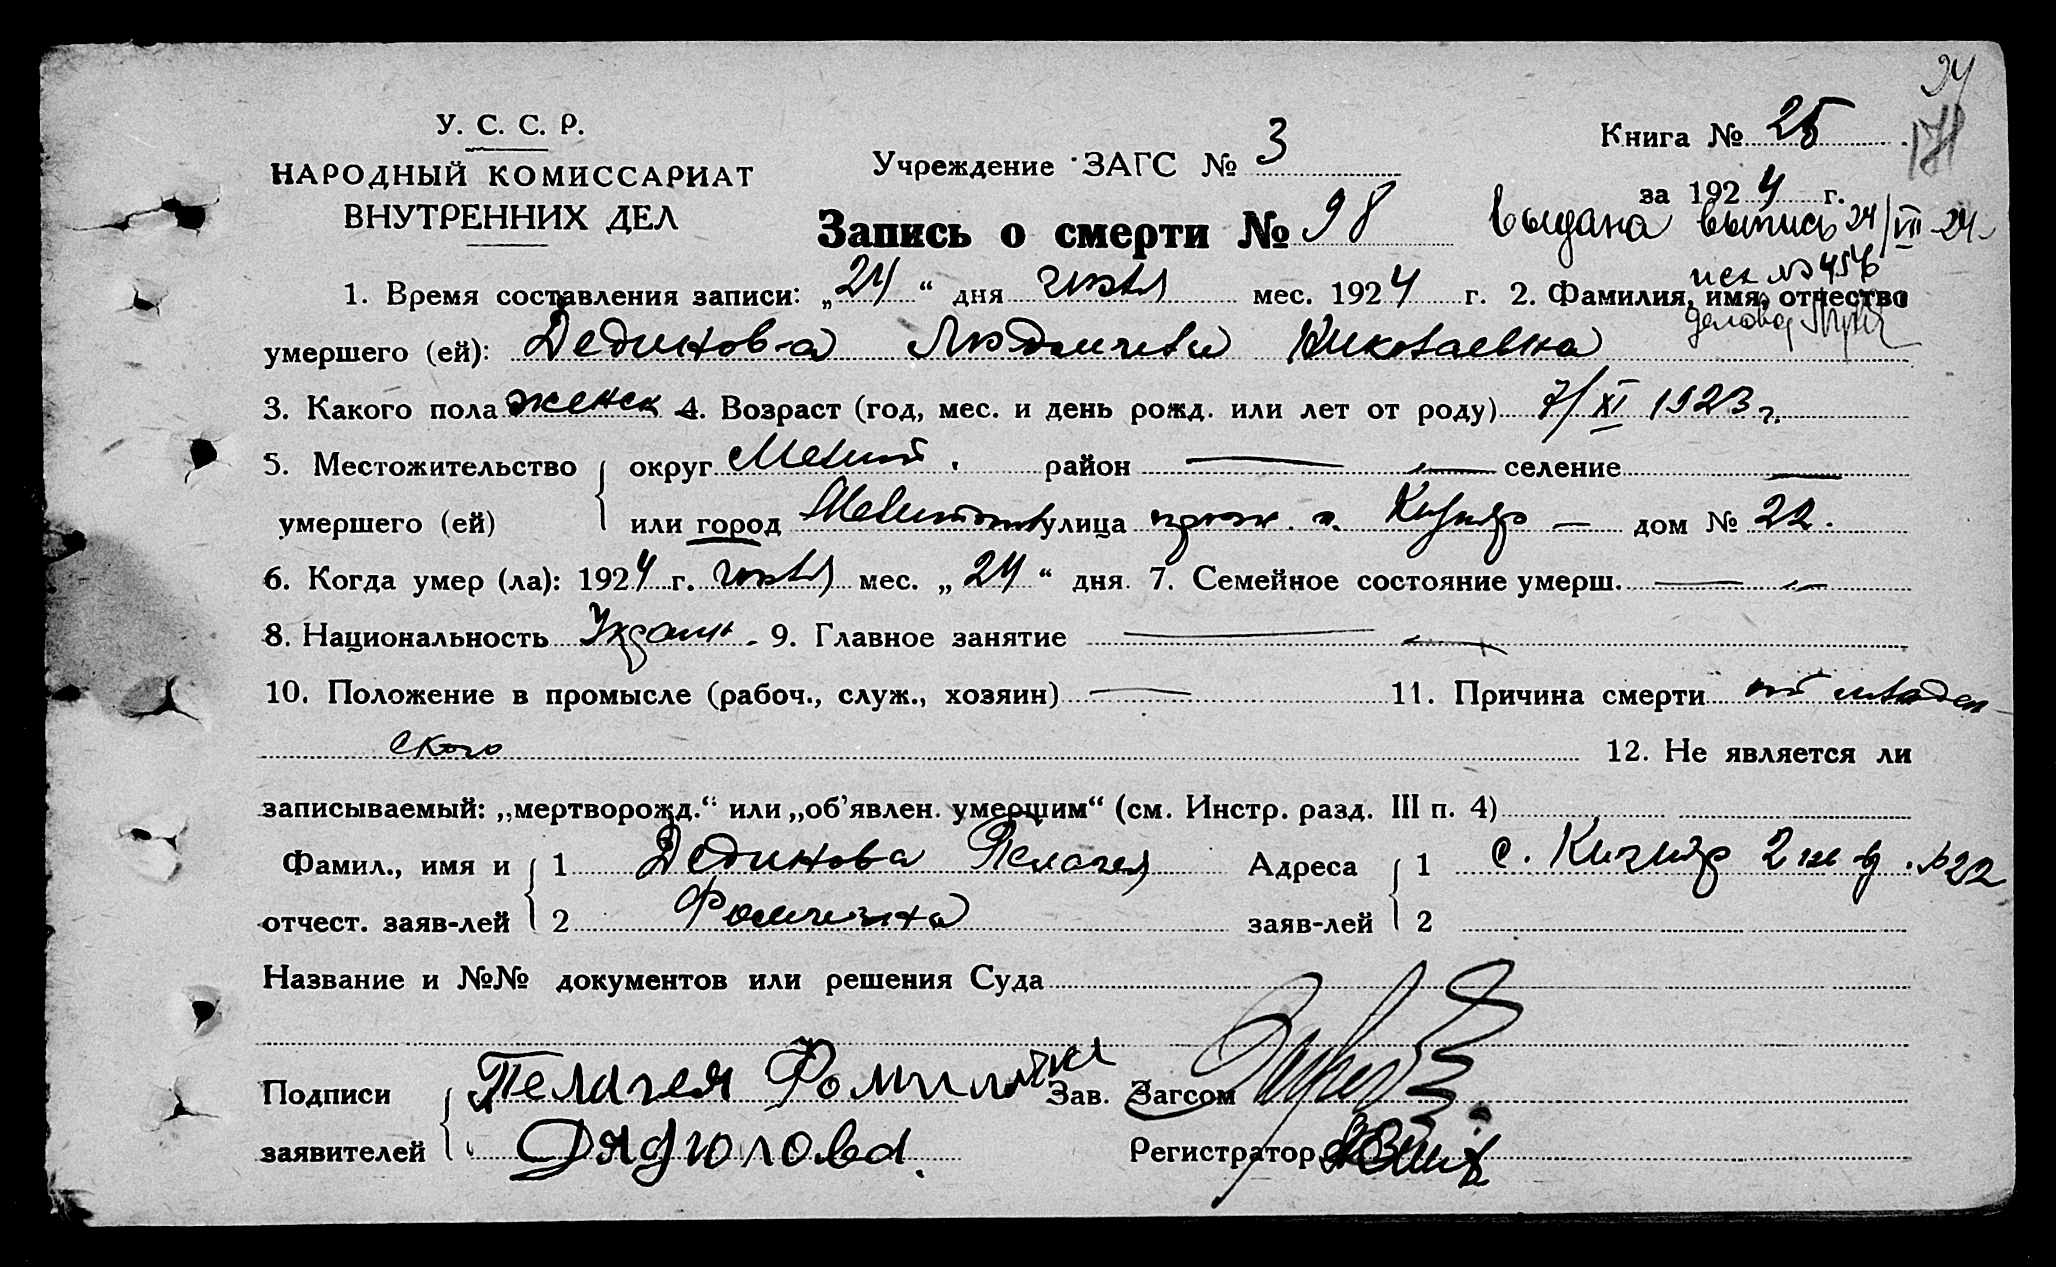 У. С. С. Р.
НАРОДНЫЙ КОМИССАРИАТ
ВНУТРЕННИХ ДЕЛ
Учреждение ЗАГС № 3
Книга № 25
за 1924 г.
Запись о смерти № 98
выдана выпись 24/VII-24
1. Время составления записи: „24“ дня июля мес. 1924 г. 2. Фамилия, имя, отчество
умершего (ей): Николаевна
3. Какого пола женск 4. Возраст (год, мес. и день рожд. или лет от роду) 7/XI 1923 г.
5. Местожительство округ Мелит. район — селение —
умершего (ей) или город улица дом № 22.
6. Когда умер (ла): 1924 г. июля мес. „24“ дня 7. Семейное состояние умерш. —
8. Национальность Украин. 9. Главное занятие —
10. Положение в промысле (рабоч., служ., хозяин) — 11. Причина смерти от младен-
ского 12. Не является ли
записываемый: „мертворожд.“ или „об’явлен. умершим“ (см. Инстр. разд. III п. 4)
Фамил., имя и 1 Пелагея Адреса 1 с. Кизияр 2 № 22
отчест. заяв-лей 2 заяв-лей 2
Название и №№ документов или решения Суда
Подписи Пелагея Зав. Загсом
заявителей Регистратор